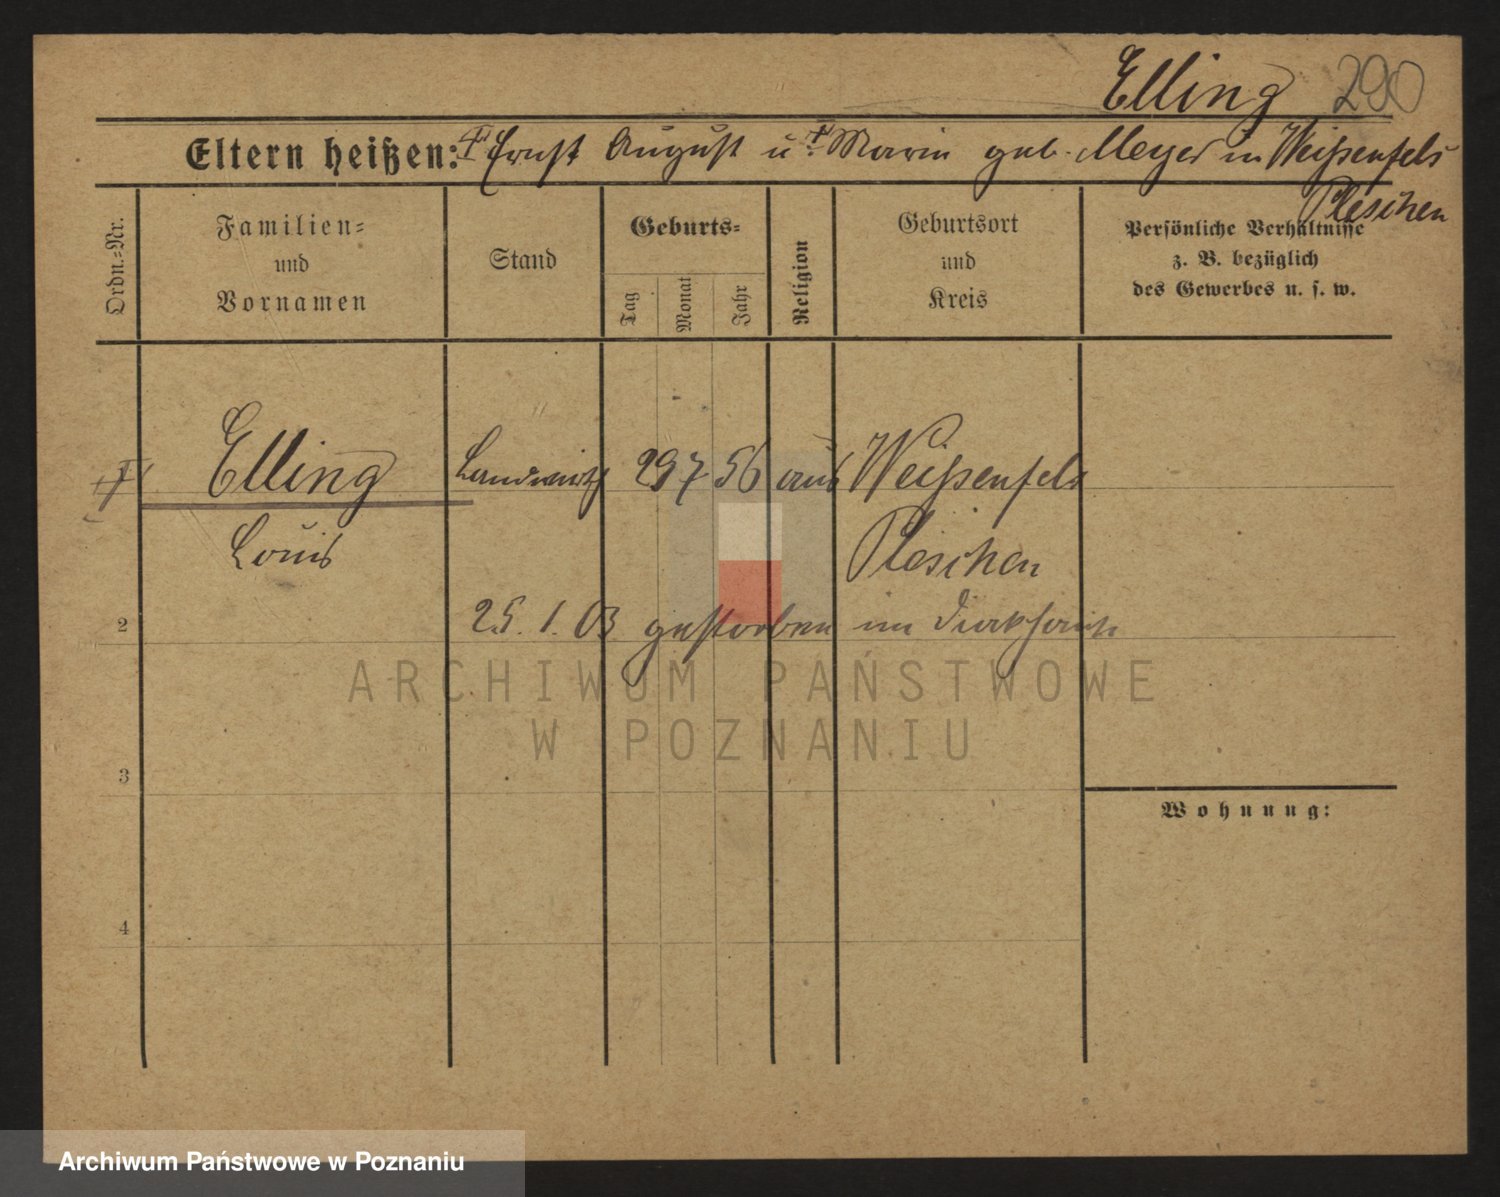 Elling 290
Eltern heißen: † Ernst August u. † Marie geb. Meyer in Weißenfels
Pleschen
Ordn.-Nr.
Familien-
und
Vornamen
Stand
Geburts-
Tag
Monat
Jahr
Religion
Geburtsort
und
Kreis
Persönliche Verhältnisse
z. B. bezüglich
des Gewerbes u. s. w.
† Elling Landwirth 29 7 56 aus Weißenfels
Louis Pleschen
2 25. 1. 03 gestorben im
ARCHIWUM PAŃSTWOWE
W POZNANIU
3
Wohnung:
4
Archiwum Państwowe w Poznaniu